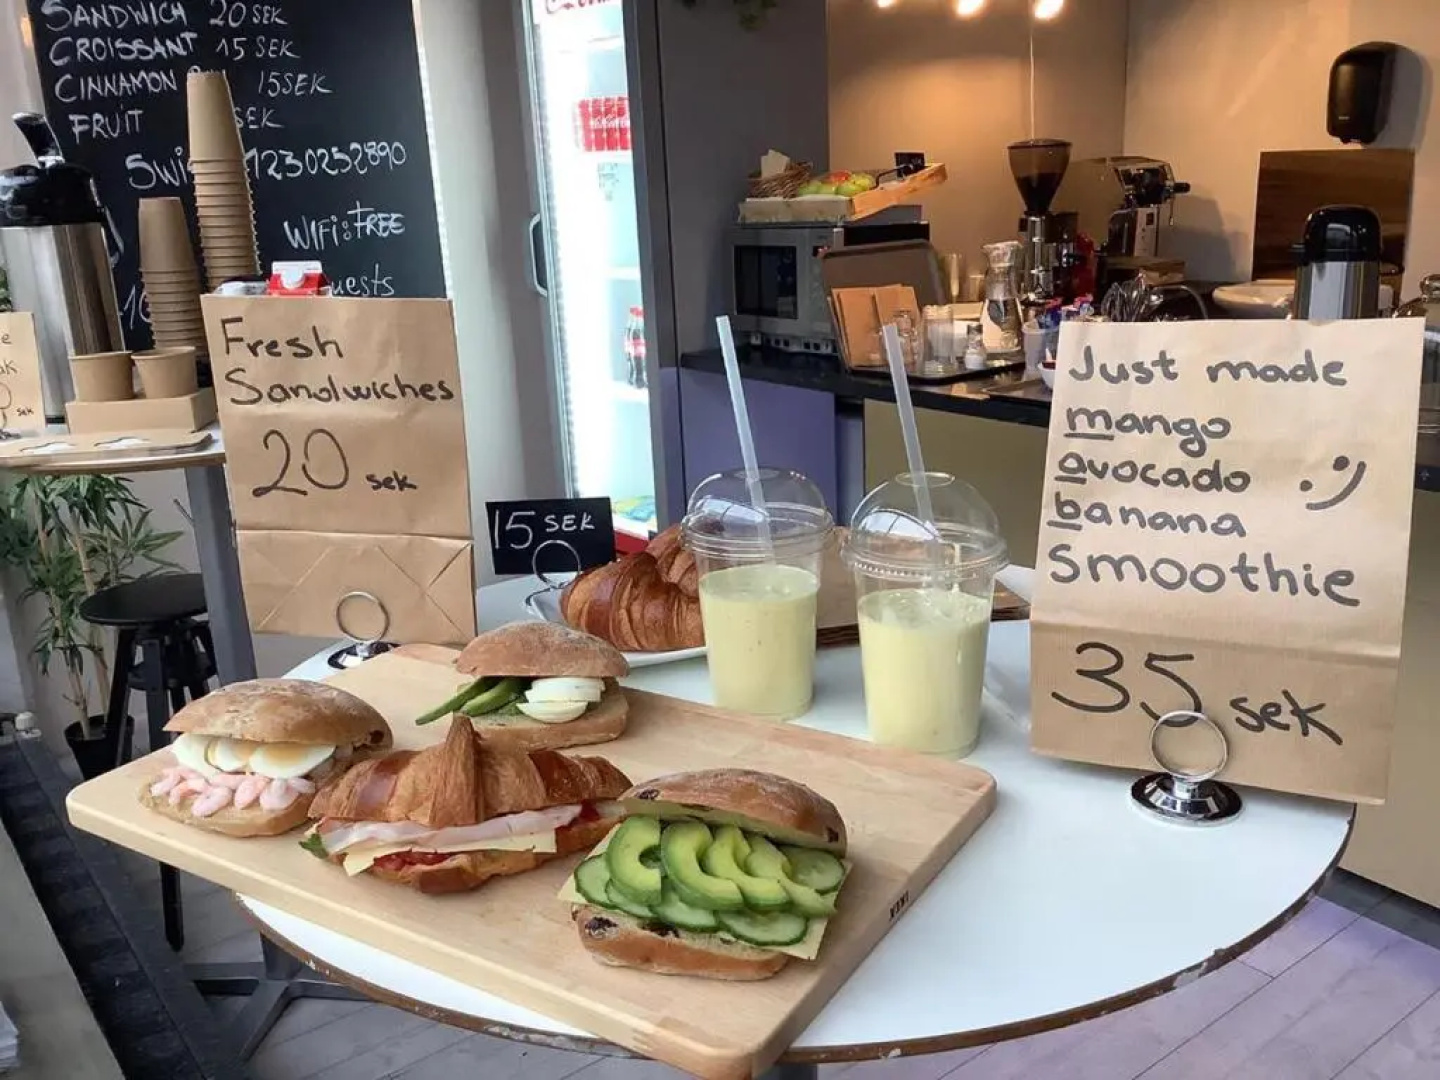 SANDWICH 20 SEK
CROISSANT 15 SEK
CINNAMON 15SEK
FRUIT SEK
1230252890
WIFI: FREE
Fresh
Sandwiches
20 sek
15 SEK
Just made
mango
avocado
banana
Smoothie
35 sek
sek